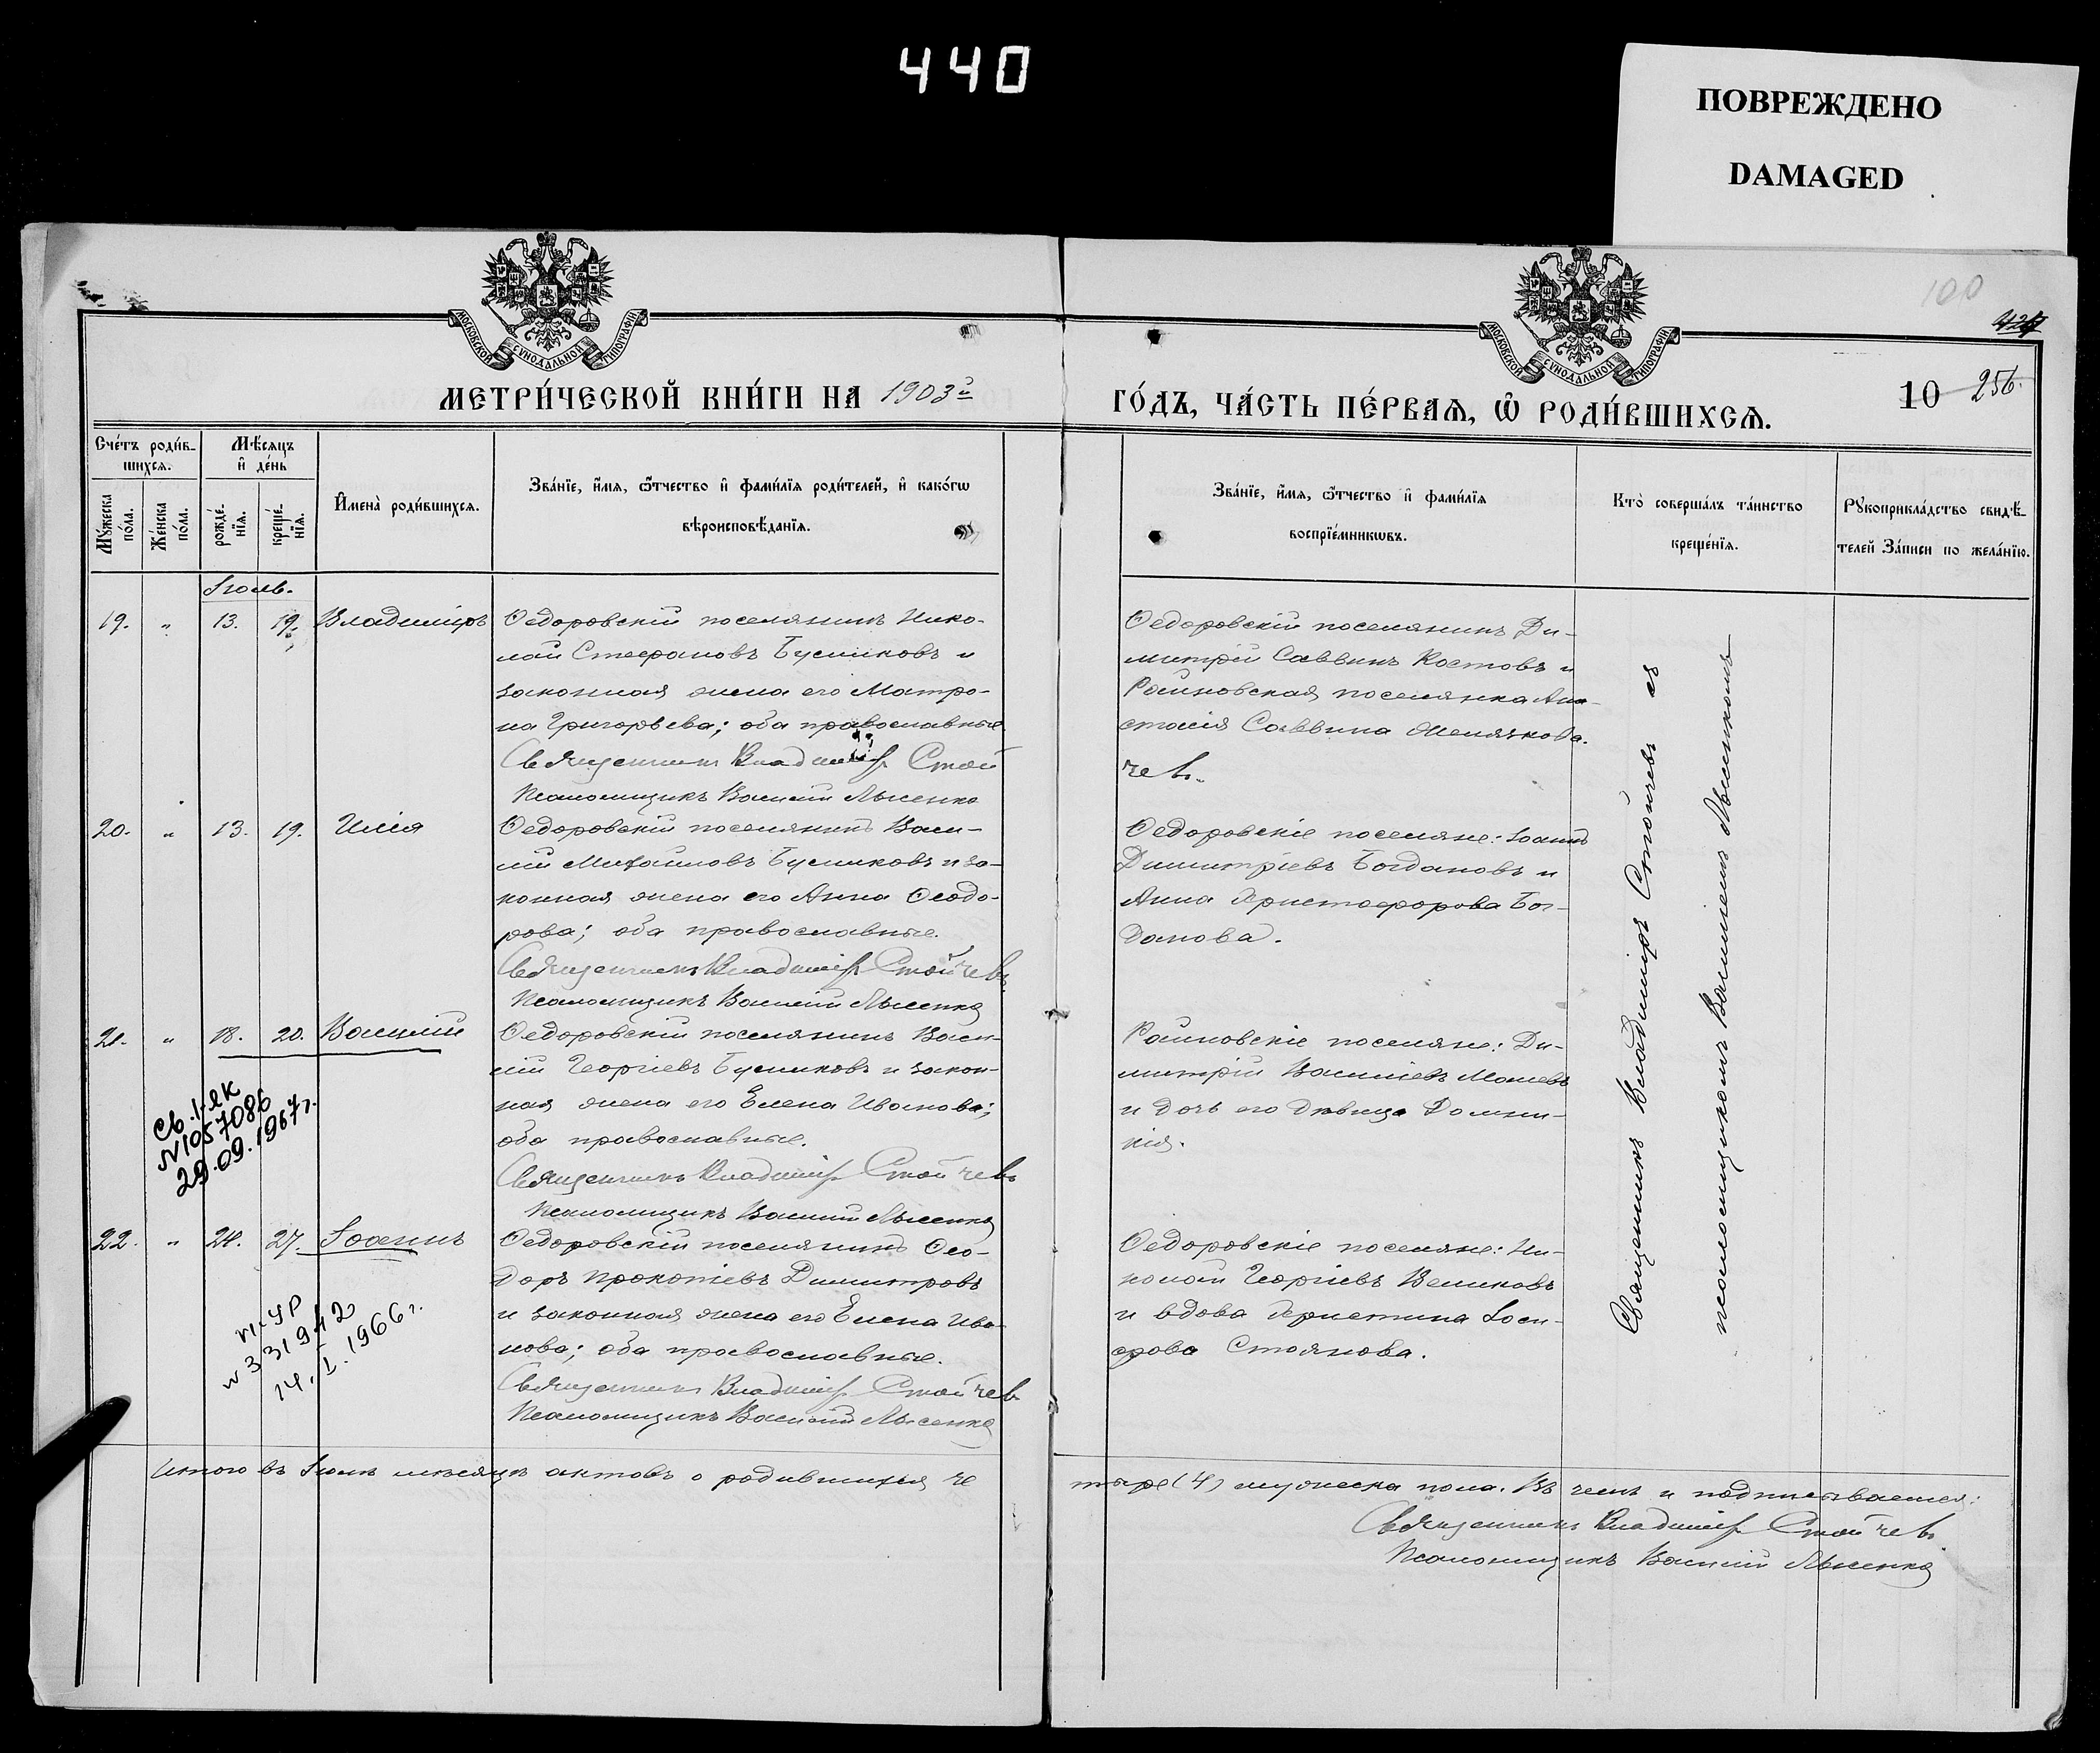 440
ПОВРЕЖДЕНО
DAMAGED
МОСКОВСКОЙ СѴНОДАЛЬНОЙ ТИПОГРАФІИ
МОСКОВСКОЙ СѴНОДАЛЬНОЙ ТИПОГРАФІИ
100
МЕТРИ́ЧЕСКОЙ КНИ́ГИ НА 1903й
ГО́ДЪ, ЧА́СТЬ ПЕ́РВАѦ, Ѡ҆ РОДИ́ВШИХСѦ.
10 256.
Сче́тъ роди́в-
шихсѧ.
Мѣ́сяцъ
и҆ де́нь
Мꙋ́жеска
по́ла.
Же́нска
по́ла.
рожде́-
нїѧ.
креще́-
нїѧ.
И҆мена̀ роди́вшихсѧ.
Зва́нїе, и҆́мѧ, ѻ҆́тчество и҆ фами́лїѧ роди́телей, и҆ како́гѡ
вѣроисповѣ́данїѧ.
Зва́нїе, и҆́мѧ, ѻ҆́тчество и҆ фами́лїѧ
воспрїе́мникѡвъ.
Кто̀ соверша́лъ та́инство
креще́нїѧ.
Рꙋкоприкла́дство свидѣ́-
телей За́писи по жела́нїю.
Іюль.
19. " 13. 19. Владиміръ
Ѳедоровскій поселянинъ Нико-
лай Стефановъ Бусликовъ и
законная жена его Матро-
на Григорьева; оба православные.
Священникъ Владиміръ Стой
чевъ.
Псаломщикъ Василій Лысенко
Ѳедоровскій поселянинъ Ди-
митрій Саввинъ Костовъ и
Раиновская поселянка Ана-
стасія Саввина Желязкова.
20. " 13. 19. Илія
Ѳедоровскій поселянинъ Васи-
лій Михаиловъ Бусликовъ и за-
конная жена его Анна Ѳеодо-
рова; оба православные.
Священникъ Владиміръ Стойчевъ.
Псаломщикъ Василій Лысенко
Ѳедоровскіе поселяне: Іоаннъ
Димитріевъ Богдановъ и
Анна Христофорова Бог-
данова.
21. " 18. 20. Василій
Ѳедоровскій поселянинъ Васи-
лій Георгіевъ Бусликовъ и закон-
ная жена его Елена Иванова;
оба православные.
Священникъ Владиміръ Стойчевъ
Псаломщикъ Василій Лысенко
Раиновскіе поселяне: Ди-
митрій Василіевъ
и дочь его дѣвица Домни-
кія.
N 1057086
29.09.1967г.
22. " 24. 27. Іоаннъ
Ѳедоровскій поселянинъ Ѳео-
доръ Прокопіевъ Димитровъ
и законная жена его Елена Ива-
нова; оба православные.
Священникъ Владиміръ Стойчевъ
Псаломщикъ Василій Лысенко
Ѳедоровскіе поселяне: Ни-
колай Георгіевъ Великовъ
и вдова Христина Іоси-
фова Стоянова.
N 331942
14.I.1966г.
Священникъ Владиміръ Стойчевъ съ
псаломщикомъ Василіемъ Лысенкомъ
Итого въ Іюлѣ мѣсяцѣ актовъ о родившихся че
тыре (4) мужеска пола. Въ чемъ и подписываемся:
Священникъ Владиміръ Стойчевъ.
Псаломщикъ Василій Лысенко